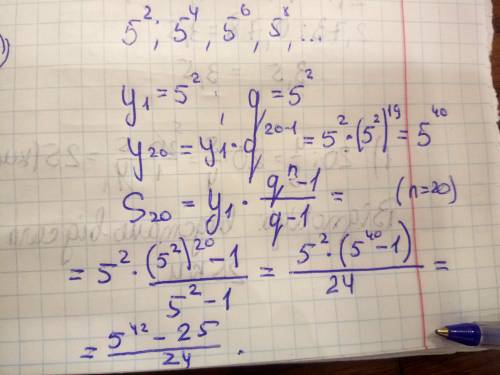 )
5², 5⁴, 5⁶, 5⁸, ...
y₁ = 5², q = 5²
y₂₀ = y₁ · q²⁰⁻¹ = 5² · (5²)¹⁹ = 5⁴⁰
S₂₀ = y₁ · (qⁿ-1)/(q-1) = (n=20)
= 5² · ((5²)²⁰-1)/(5²-1) = (5² · (5⁴⁰-1))/24 =
= (5⁴² - 25)/24 .